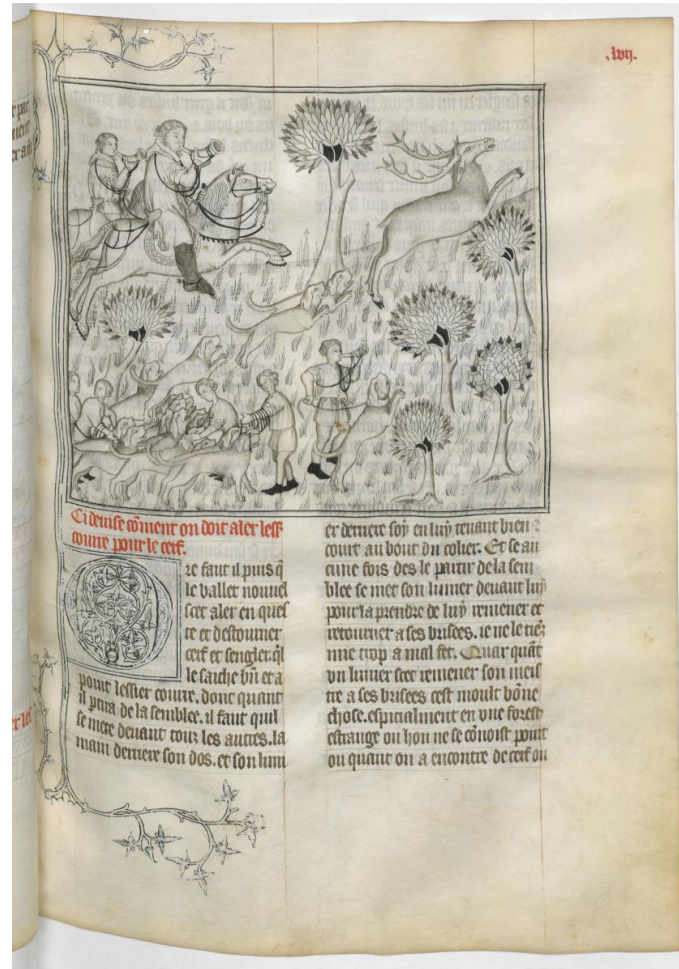 .lvij.
Ci deuise cōment on doit aler less
courre pour le cerf.
Ore faut il puis q̄
le vallet nouuel
scet aler en ques
te et destourner
cerf et sengler. q̄l
le saiche bn̄ et a
point lessier courre. donc quant
il ptira de la semblee. il faut quil
se mete deuant touz les autres. la
main derriere son dos. et son limi
er derriere soy en luy tenant bien
court au bout du colier. Et se au
cune fois des le partir de la sem
blee se met son limier deuant luy
pour la prendre de luy remener et
retourner a ses brisees. ie ne le tiē
mie trop a mal fet. Quar quāt
vn limier scet remener son meis
tre a ses brisees cest moult bōne
chose. espicialment en vne forest
estrange ou hon ne se cōnoist point
ou quant on a encontre de cerf ou